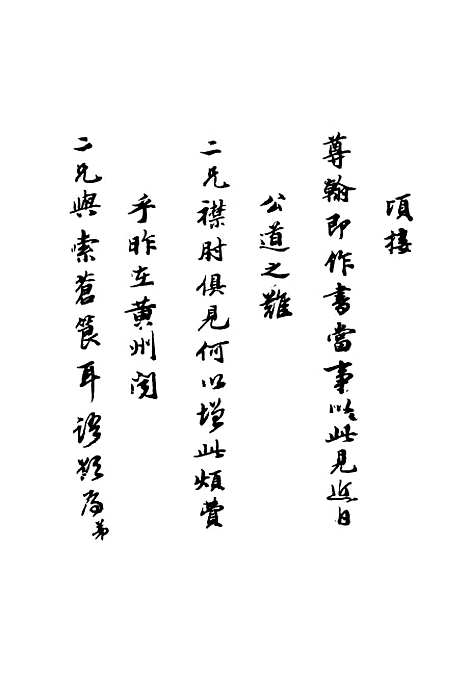 頃接
尊翰即作書當事以此見近日
公道之難
二兄襟肘俱見何以增此煩費
乎昨在黃州閱
二兄與索蒼筤耳語 弟